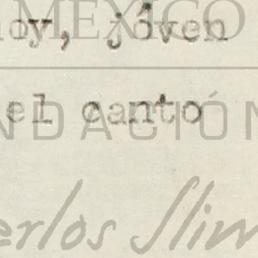 MÉXICO
hoy, jóven
el canto
NDACIÓN
erlos Slim